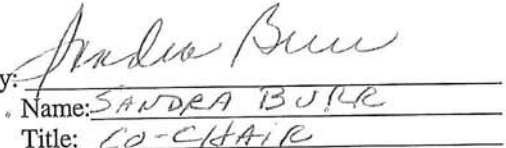 y: Sandra Burr
Name: SANDRA BURR
Title: CO-CHAIR